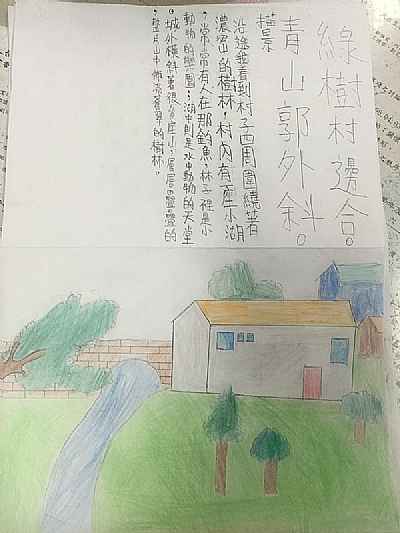 綠樹村邊合。
青山郭外斜。
描景
沿途我看到村子四周圍繞著
濃密的樹林，村內有一座小湖
，常常有人在那釣魚，林子裡是小
動物的樂園，湖中則是水中動物的天堂
。城外橫斜著很多座山，層層疊疊的
，整片山中佈滿蒼翠的樹林。